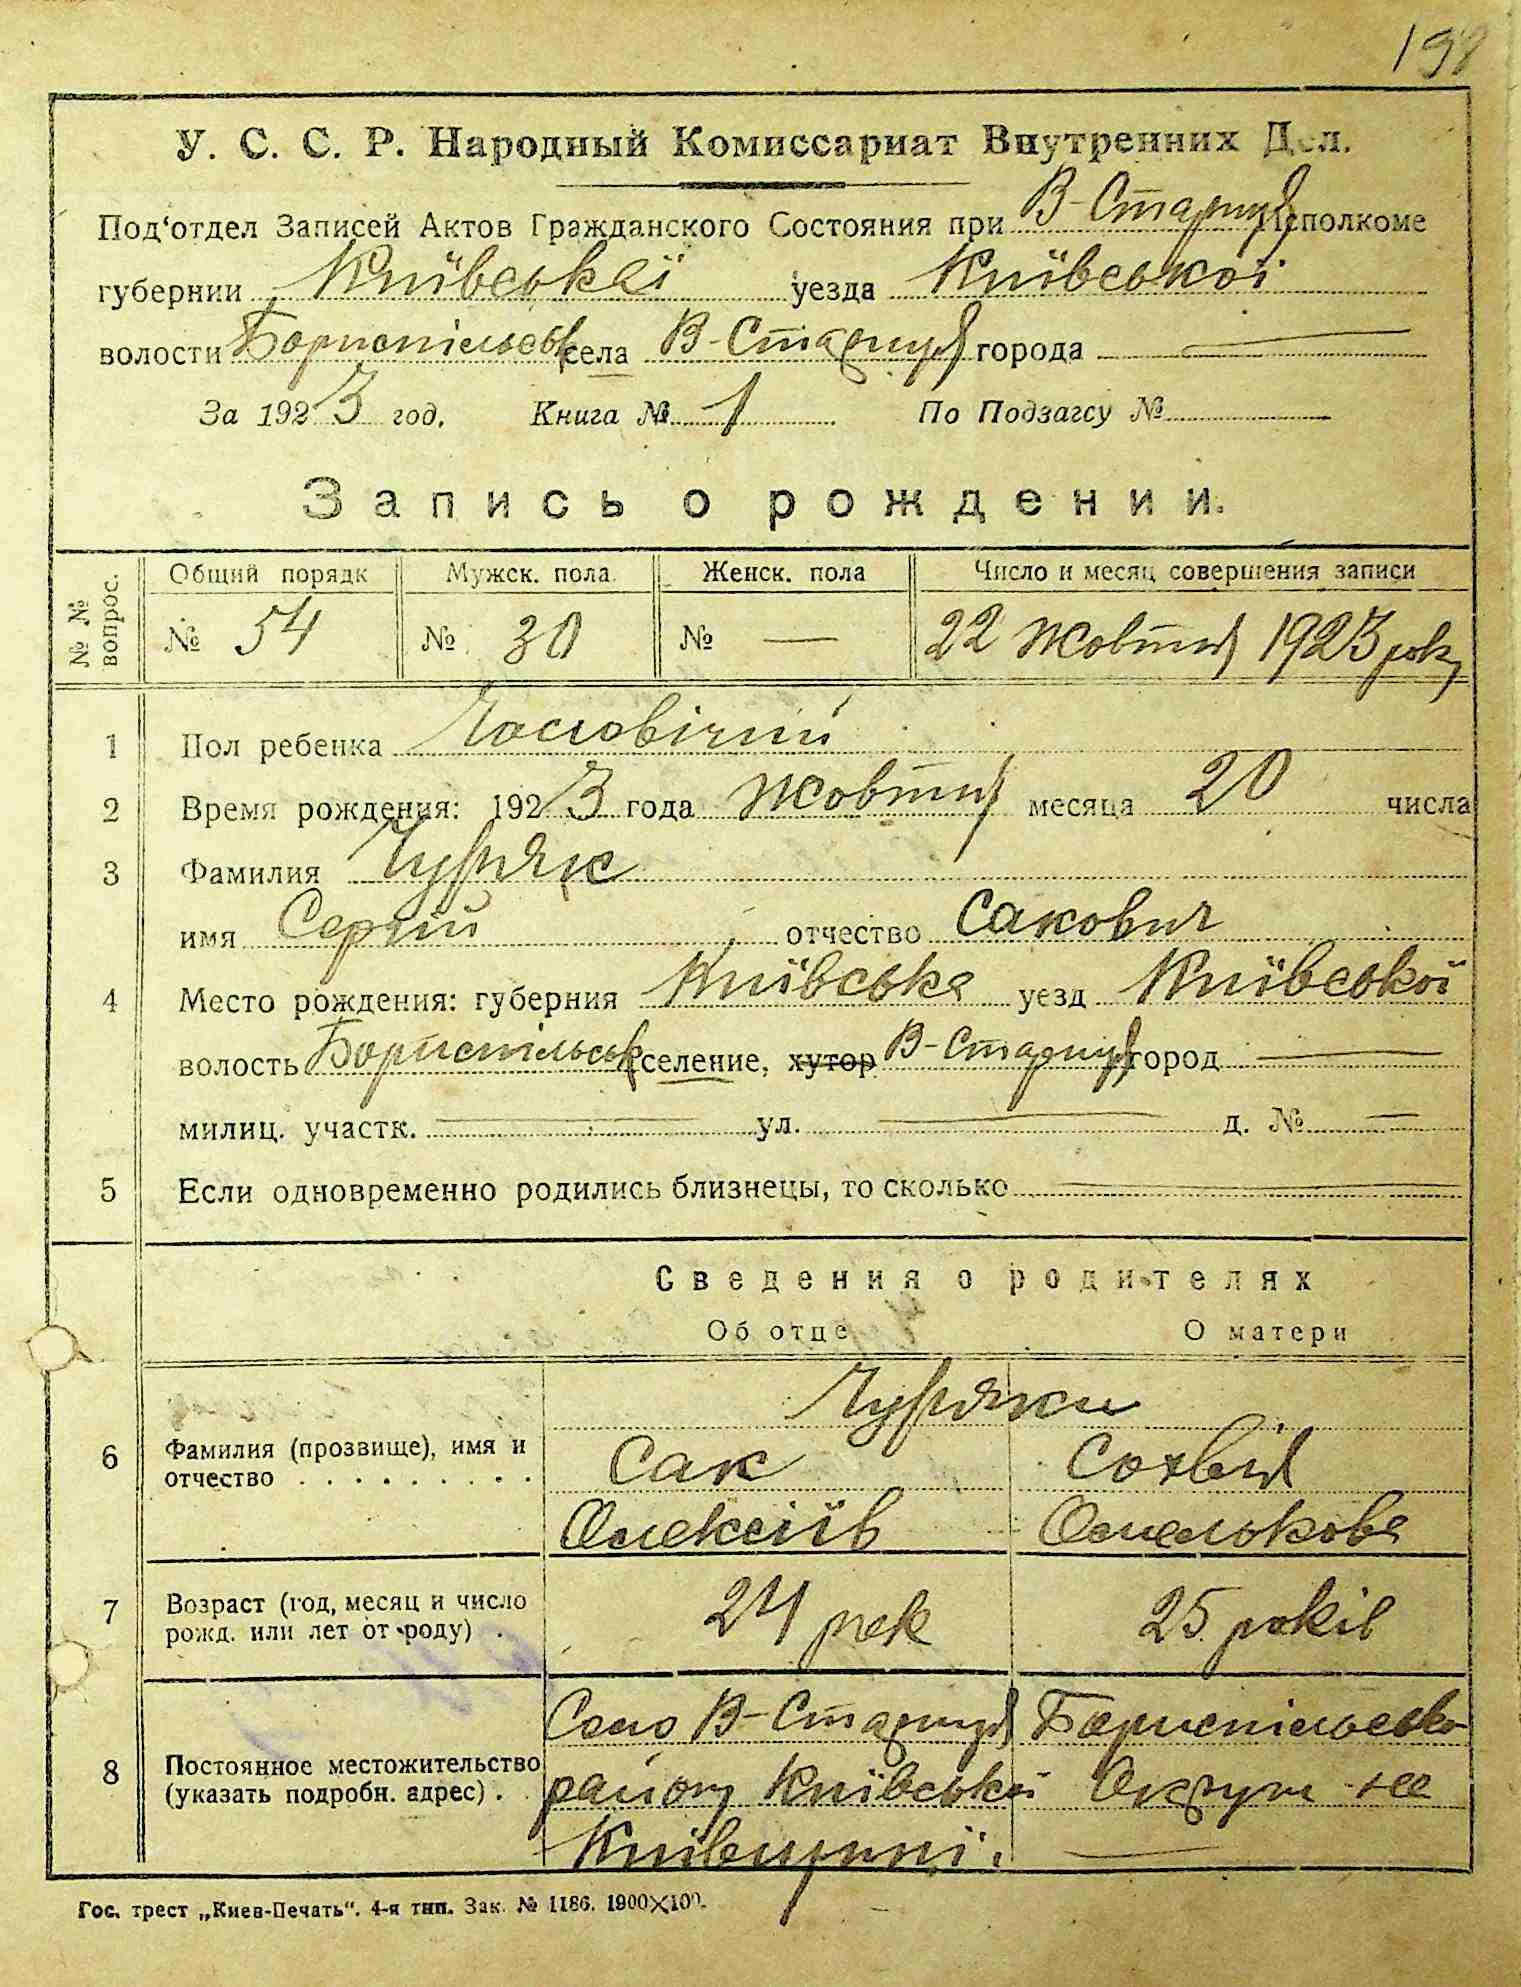 198
У. С. С. Р. Народный Комиссариат Внутренних Дел.
Под‘отдел Записей Актов Гражданского Состояния при В-Старицкі Исполкоме
губернии Київської уезда Київської
волости Бориспільськ села В-Стариця города —
За 1923 год. Книга № 1 По Подзагсу №
Запись о рождении.
№ № вопрос. Общий порядк Мужск. пола Женск. пола Число и месяц совершения записи
№ 54 № 30 № — 22 Жовтня 1923 року
1 Пол ребенка Чоловічий
2 Время рождения: 1923 года Жовтня месяца 20 числа
3 Фамилия Чуряк
имя Сергій отчество Сакович
4 Место рождения: губерния Київська уезд Київської
волость Бориспільськ селение, хутор В-Стариця город —
милиц. участк. — ул. — д. № —
5 Если одновременно родились близнецы, то сколько —
Сведения о родителях
Об отце О матери
Чуряки
6 Фамилия (прозвище), имя и отчество Сак Сохвія
Олексіїв Омелькова
7 Возраст (год, месяц и число рожд. или лет от роду) 24 рок 25 років
8 Постоянное местожительство (указать подробн. адрес) Село В-Стариця Бориспільсько
району Київської Округи на
Київщині. —
Гос. трест „Киев-Печать“. 4-я тип. Зак. № 1186. 1900×100.